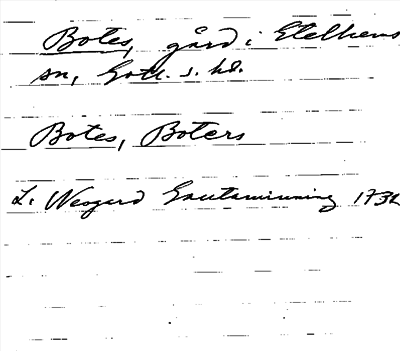 Botes, gård i Etelhems
sn, Gotl. s. hd.
Botes, Boters
L. Neogard Gautaminning 1732